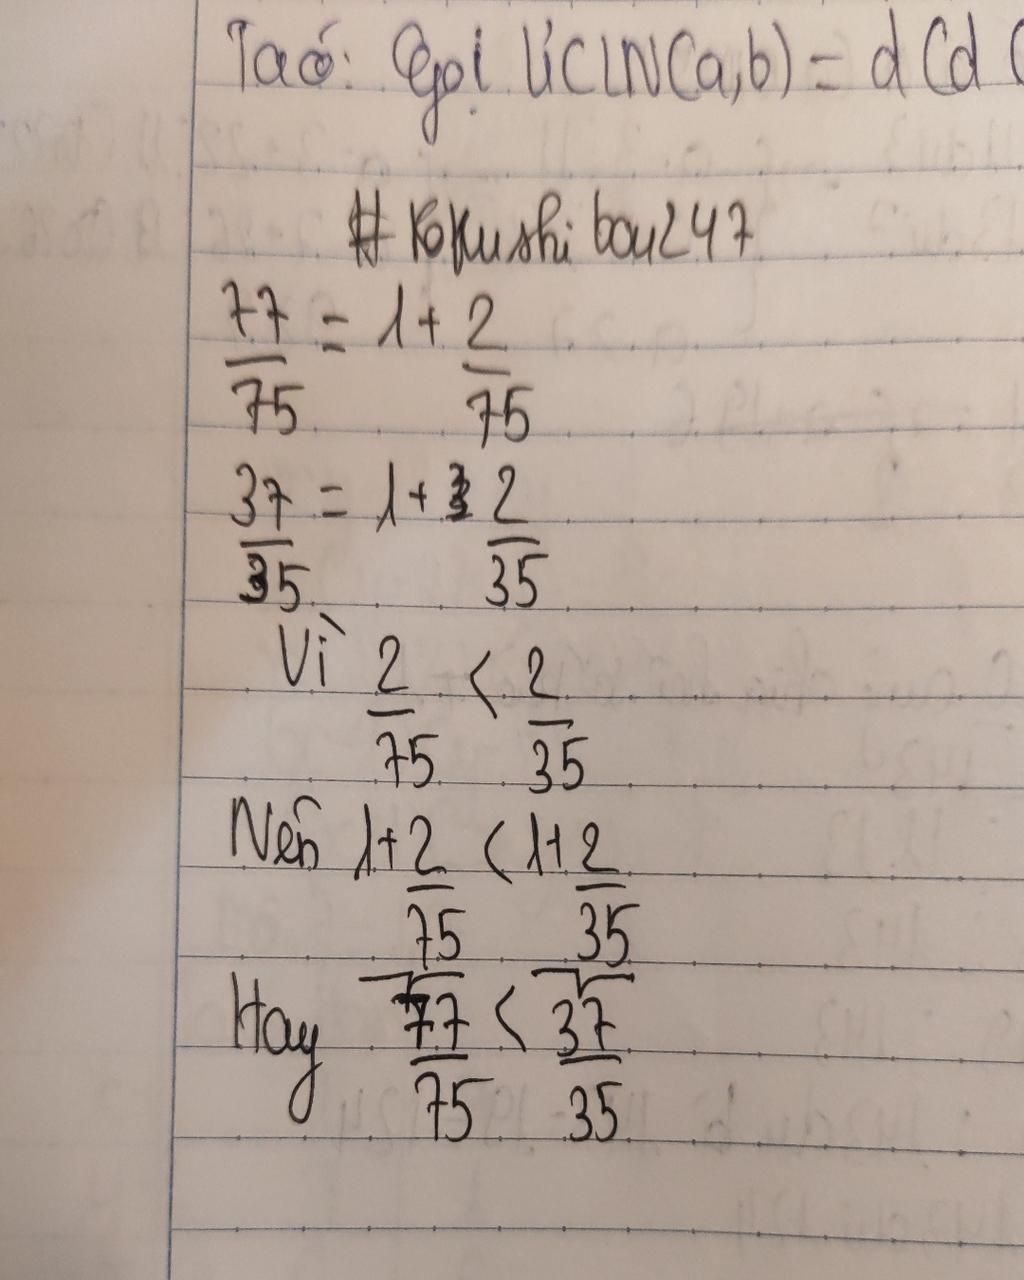 Ta có: Gọi ƯCLN(a,b) = d (d
#Kokushibou247
77/75 = 1 + 2/75
37/35 = 1 + 2/35
Vì 2/75 < 2/35
Nên 1 + 2/75 < 1 + 2/35
Hay 77/75 < 37/35